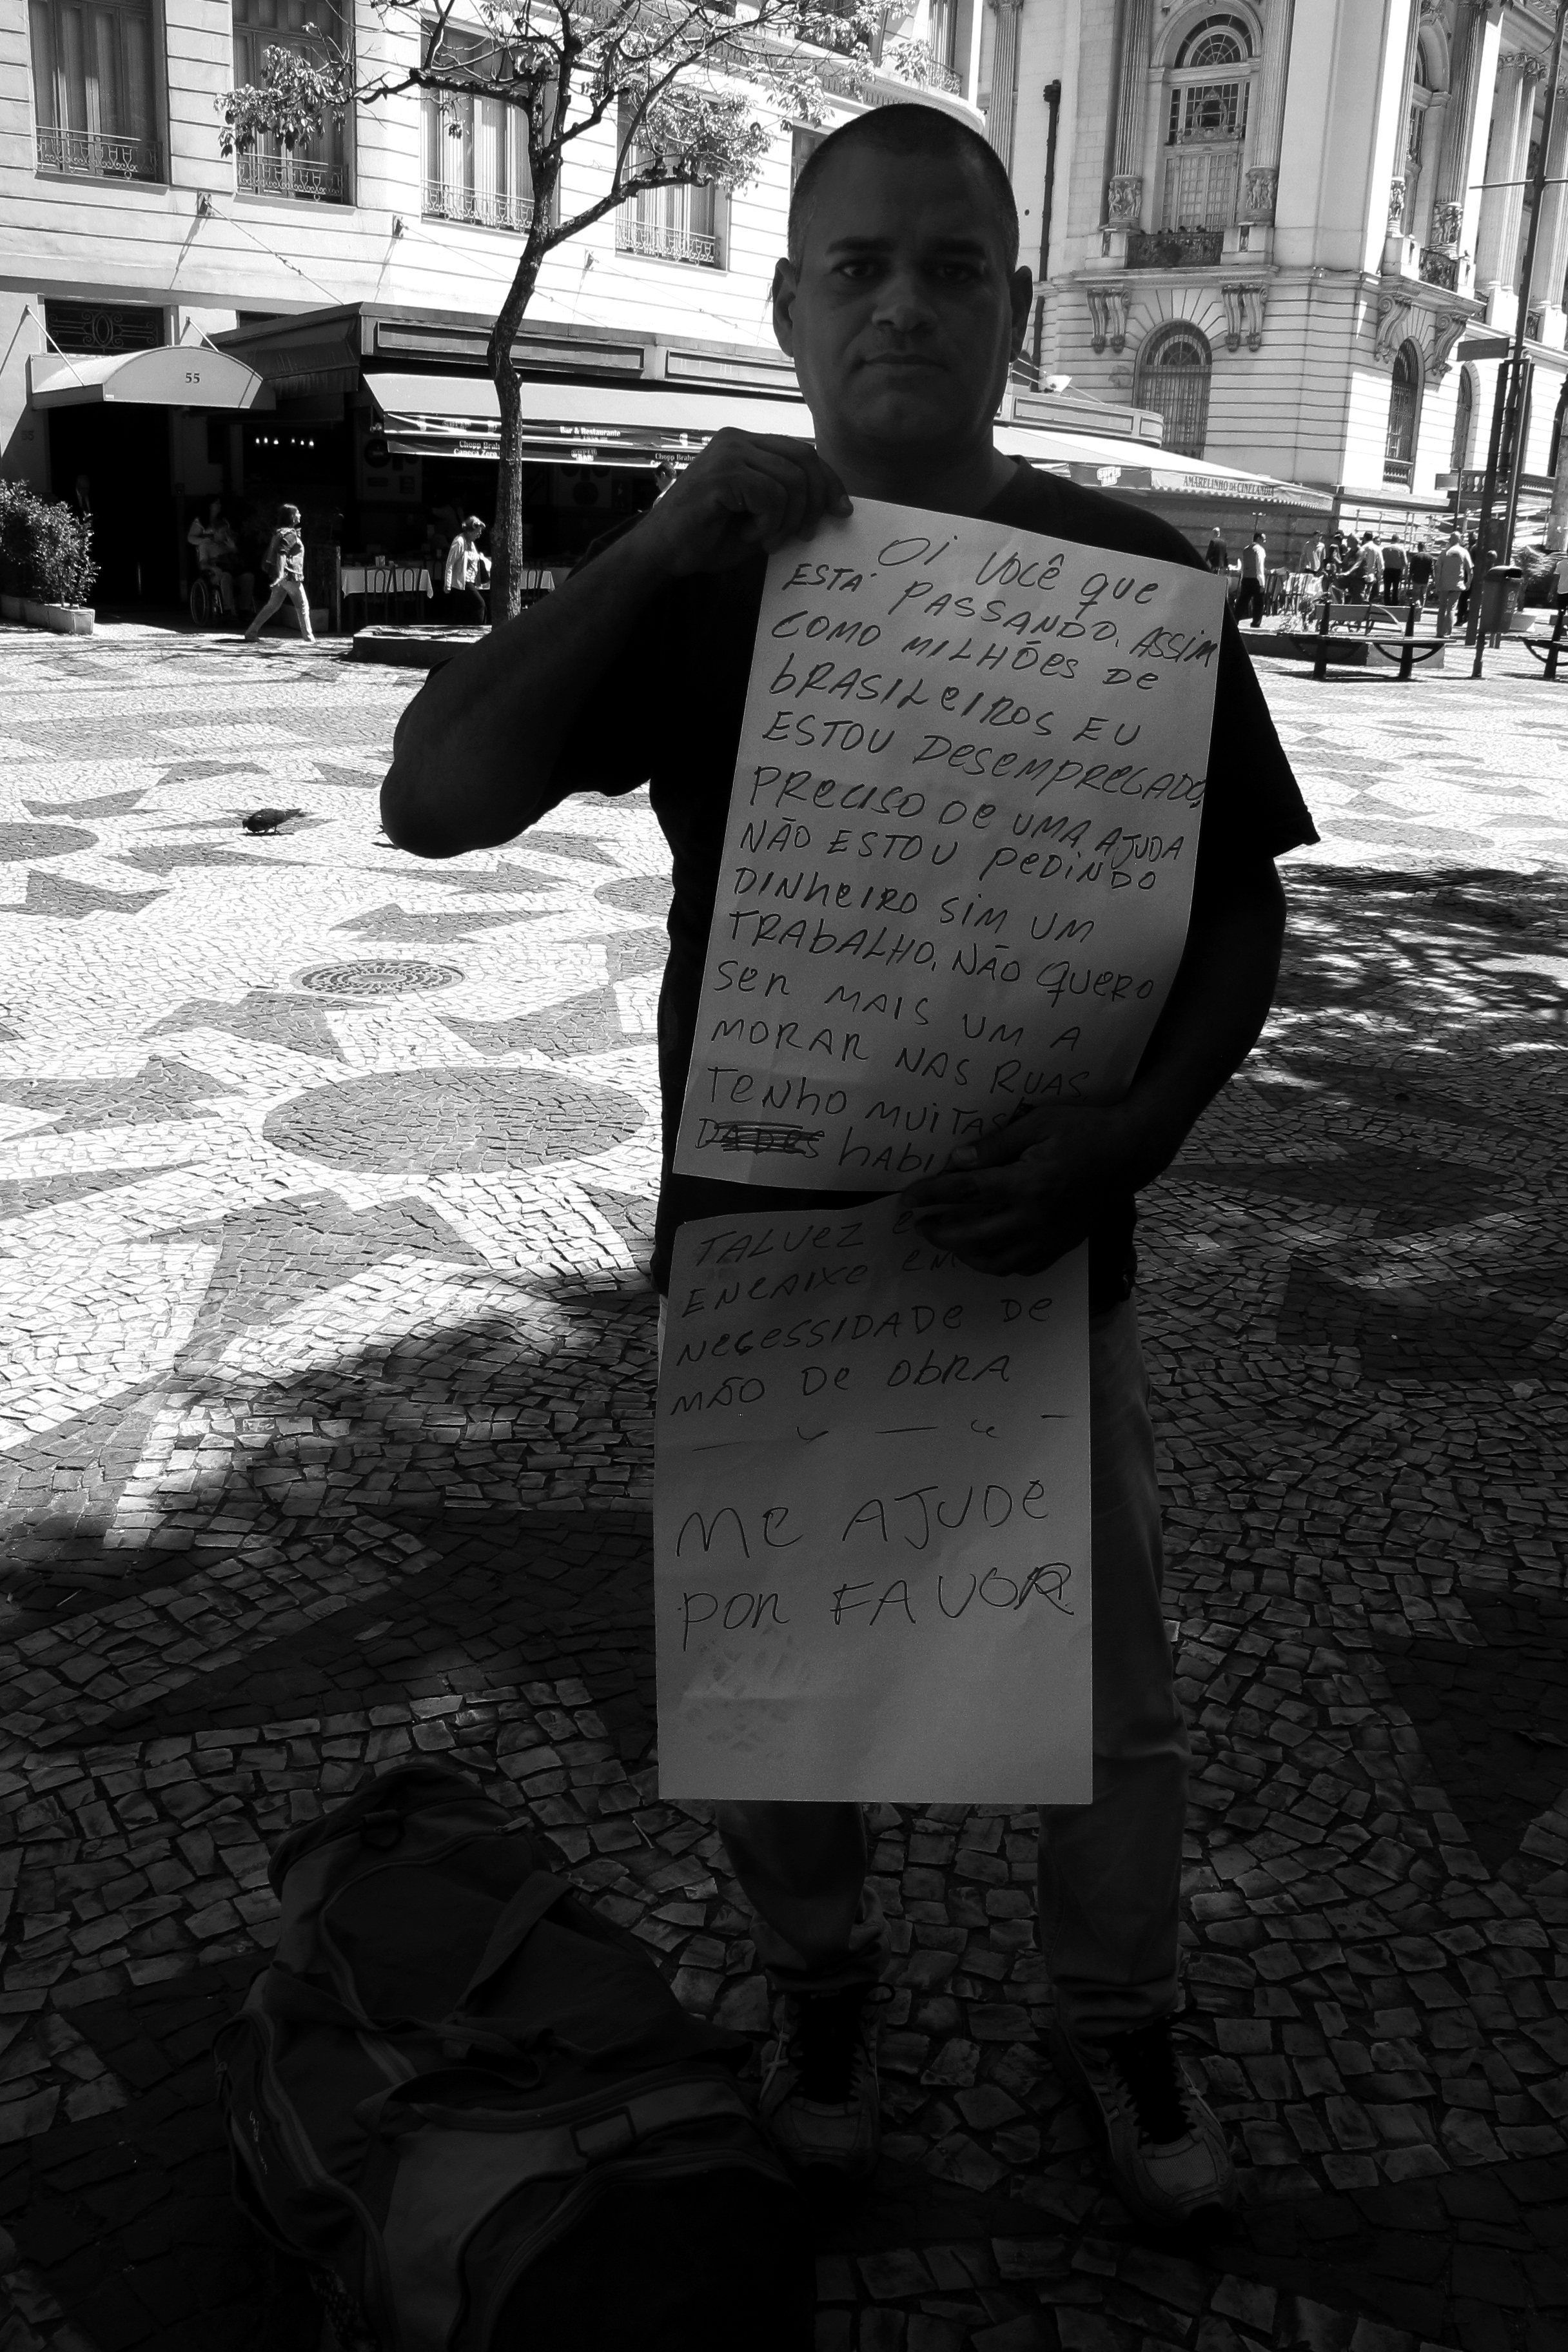 55
Bar & Restaurante
Chopp Brahma
Caneca Zero
Chopp Brahma
AMARELINHO DA CINELANDIA
Oi VOCÊ que
ESTÁ PASSANDO, ASSIM
COMO MILHÕES DE
bRASILEIROS EU
ESTOU DESEMPREGADO,
PRECISO DE UMA AJUDA
NÃO ESTOU PEDINDO
DINHEIRO SIM UM
TRABALHO, NÃO QUERO
SER MAIS UM A
MORAR NAS RUAS
TENHO MUITAS
HABI
TALVEZ E
ENCAIXE EM
NECESSIDADE DE
MÃO DE OBRA
ME AJUDE
POR FAVOR